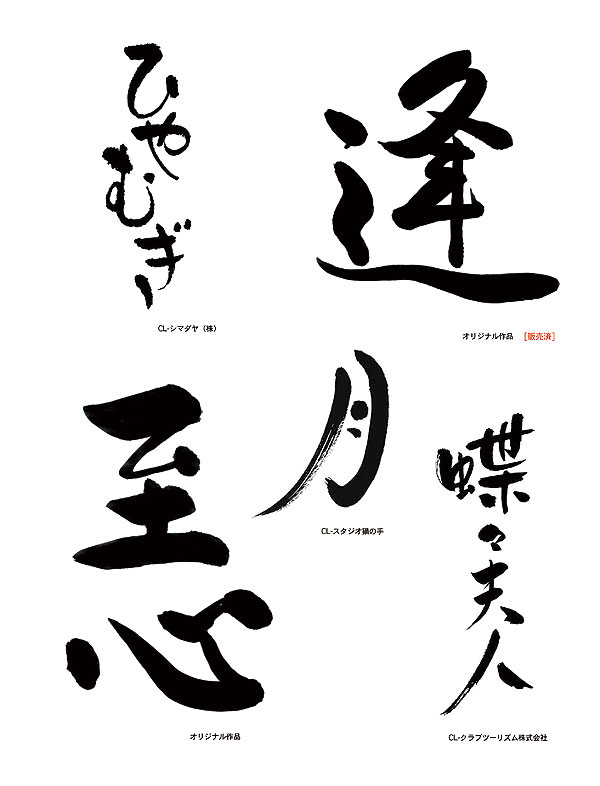 ひやむぎ
CL-シマダヤ（株）
逢
オリジナル作品 ［販売済］
月
CL-スタジオ猫の手
至心
オリジナル作品
蝶々夫人
CL-クラブツーリズム株式会社